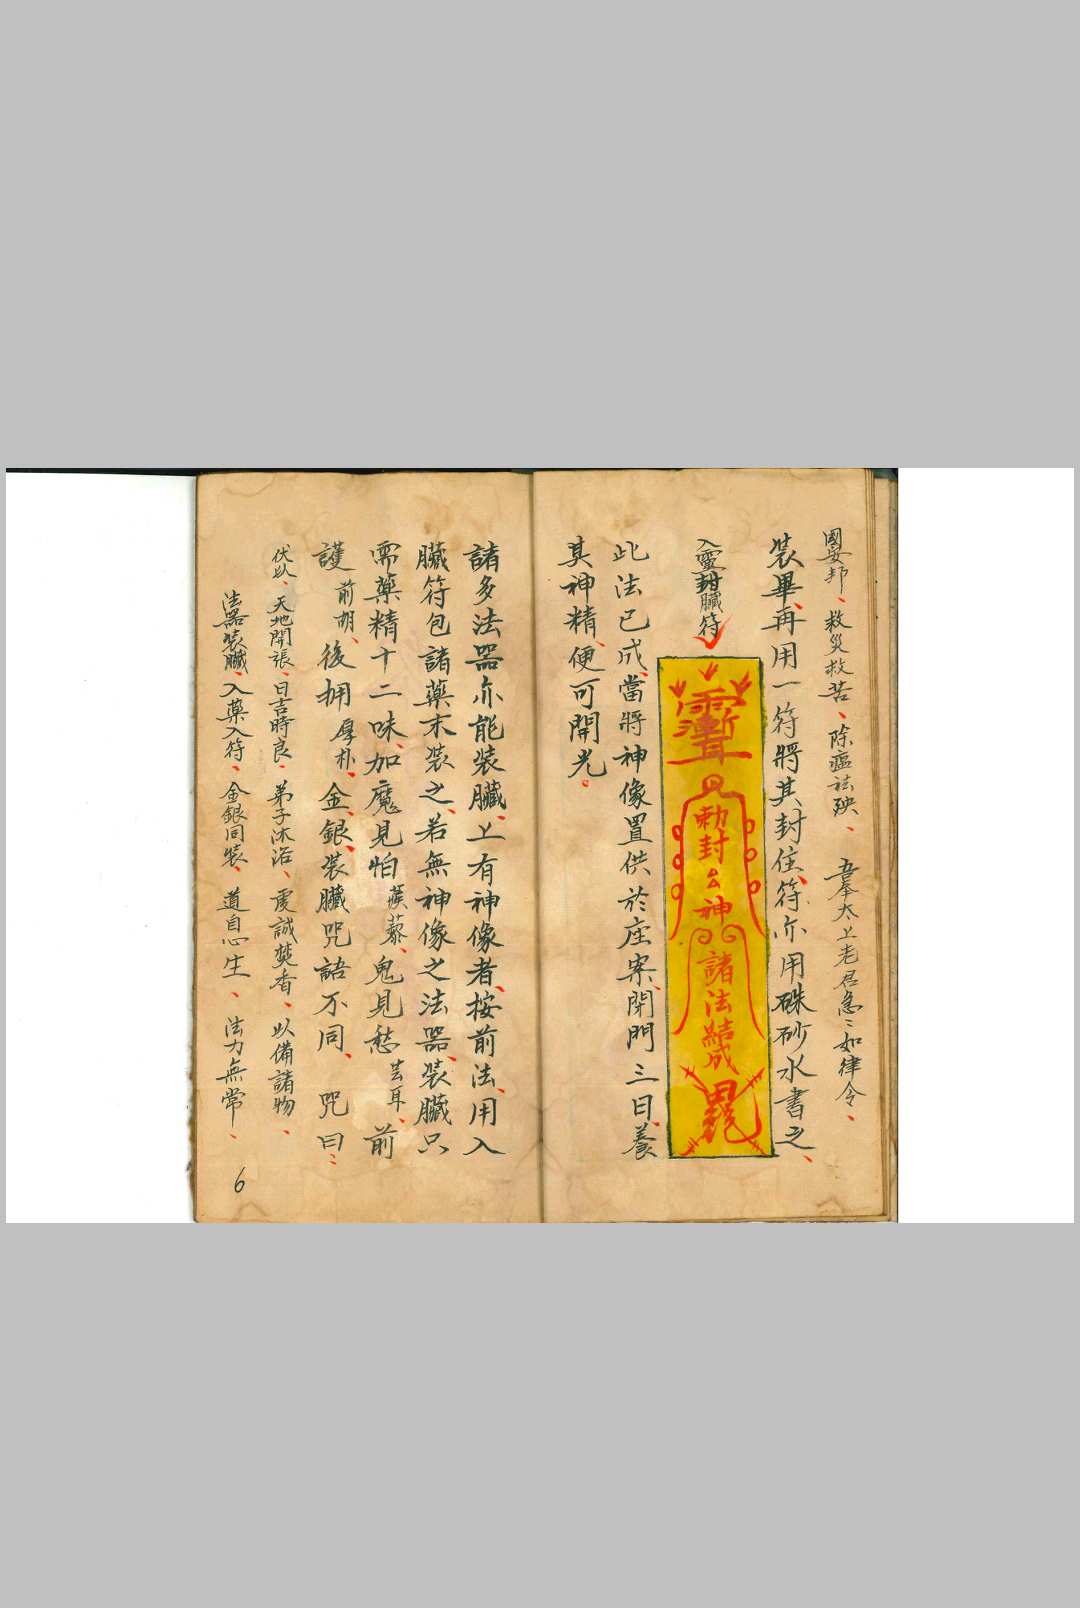 國安邦、救災救苦、除瘟祛殃、吾奉太上老君急急如律令、
裝畢、再用一符將其封住、符亦用硃砂水書之、
勅封 神
諸法結成
入靈封臟符
此法已成、當將神像置供於座案、閉門三日、養
其神精、便可開光。
諸多法器亦能裝臟、上有神像者、按前法、用入
臟符包諸藥末裝之、若無神像之法器、裝臟只
需藥精十二味、加魔見怕蒺藜、鬼見愁芸耳、前
護前胡、後拥厚朴、金、銀、裝臟咒語不同、咒曰：
伏以、天地開張、日吉時良、弟子沐浴、虔誠焚香、以備諸物、
法器裝臟、入藥入符、金銀同裝、道自心生、法力無常、
6